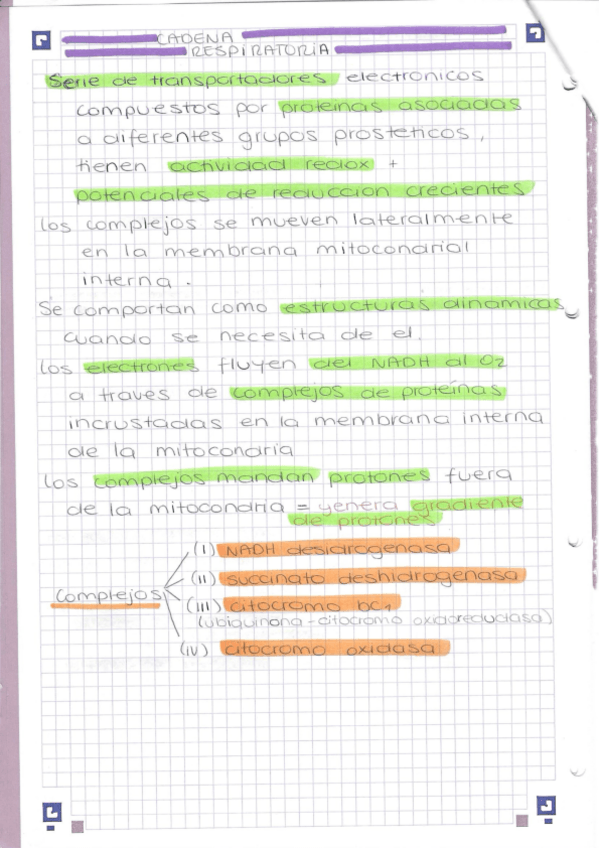 CADENA
RESPIRATORIA
Serie de transportadores electronicos
compuestos por proteinas asociadas
a diferentes grupos prosteticos,
tienen actividad redox +
potenciales de reduccion crecientes
los complejos se mueven lateralmente
en la membrana mitocondrial
interna.
Se comportan como estructuras dinamicas
cuando se necesita de el.
los electrones fluyen del NADH al O2
a traves de complejos de proteínas
incrustadas en la membrana interna
de la mitocondria
los complejos mandan protones fuera
de la mitocondria = genera gradiente
de protones
(I) NADH desidrogenasa
(II) succinato deshidrogenasa
Complejos
(III) citocromo bc1
(ubiquinona-citocromo oxidoreductasa)
(IV) citocromo oxidasa